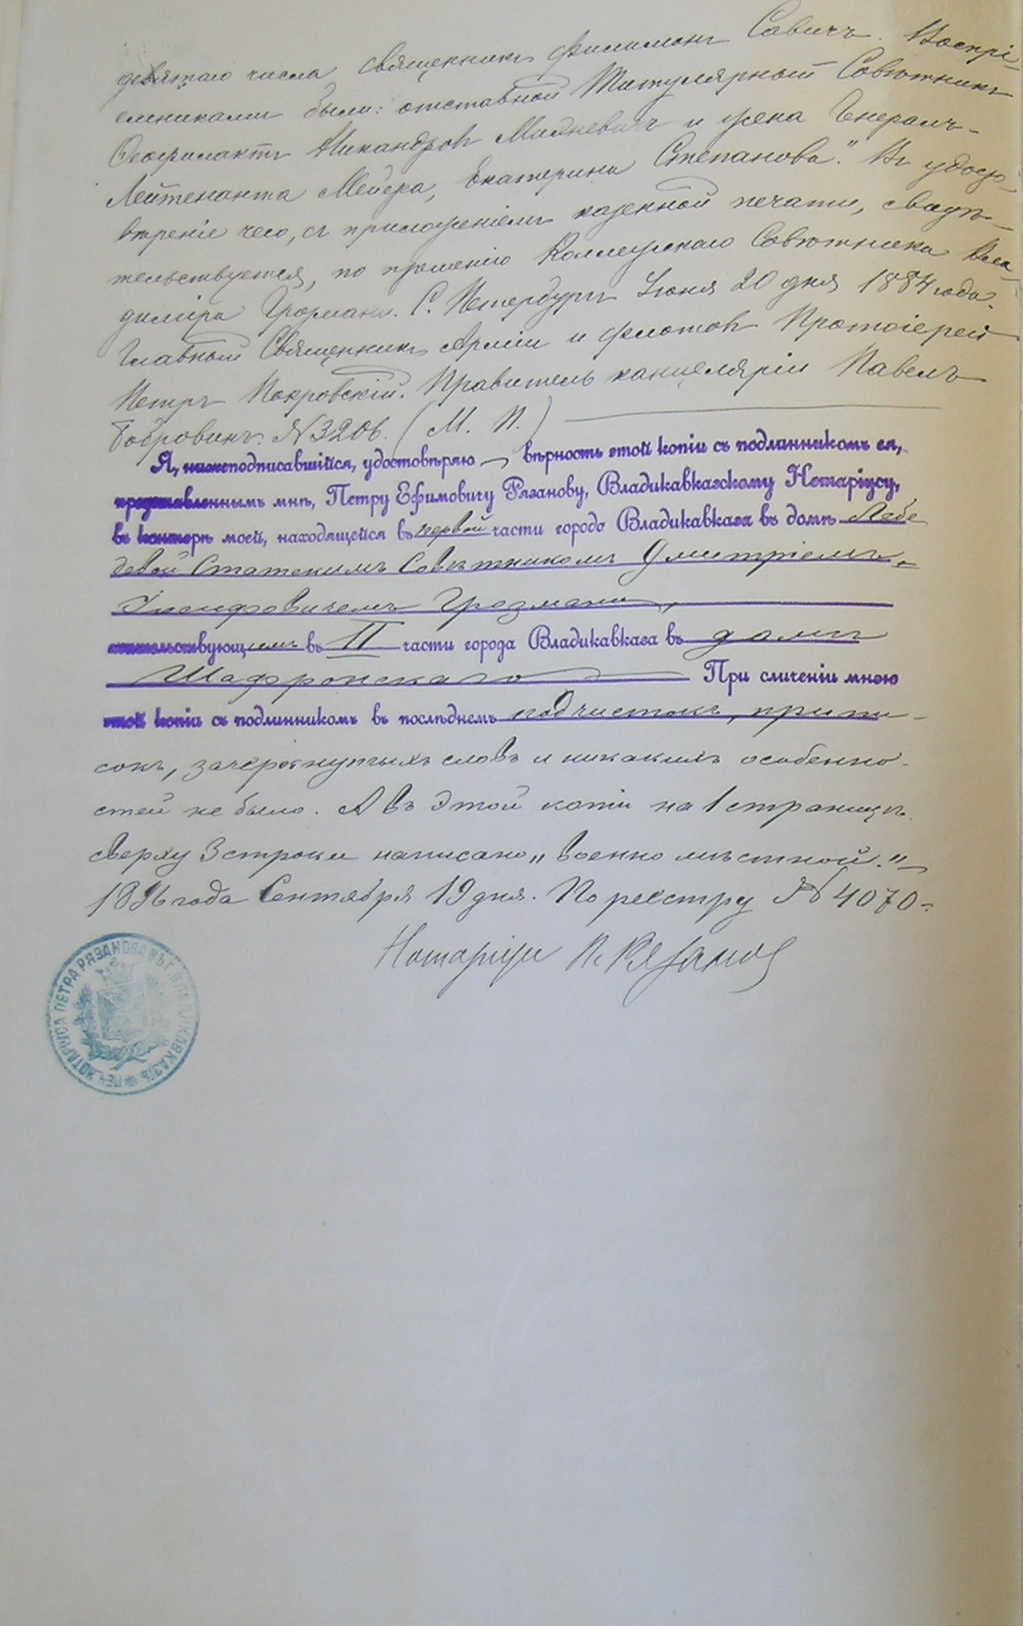 девятаго числа священникъ Филимонъ Савичъ. Воспрі-
емниками были: отставной Титулярный Совѣтникъ
Ѳеофилактъ Никандровъ и жена Генералъ-
Лейтенанта Мейера, Екатерина Степанова." Въ удосто-
вѣреніе чего, съ приложеніемъ казенной печати, свидѣ-
тельствуется, по прошенію Коллежскаго Совѣтника Вла-
диміра Грозмани. С. Петербургъ Іюня 20 дня 1884 года.
Главный Священникъ Арміи и флотовъ Протоіерей
Петръ Покровскій. Правитель канцеляріи Павелъ
Бобровинъ. № 3206. (М. П.)
Я, нижеподписавшійся, удостовѣряю вѣрность этой копіи съ подлинникомъ ея,
представленнымъ мнѣ, Петру Ефимовичу Рязанову, Владикавказскому Нотаріусу,
въ конторѣ моей, находящейся въ первой части города Владикавказа въ домѣ Лебе
девой Статскимъ Совѣтникомъ Дмитріемъ
Іосифовичемъ Грозмани,
жительствующимъ въ II части города Владикавказа въ домѣ
Шафронскаго При сличеніи мною
этой копіи съ подлинникомъ въ послѣднемъ подчистокъ, припи-
сокъ, зачеркнутыхъ словъ и никакихъ особенно-
стей не было. А въ этой копіи на 1 страницѣ
сверху 3 строки написано „военно мѣстной."
1896 года Сентября 19 дня. По реестру № 4070-
Нотаріусъ П. Рязановъ
ПЕЧ. НОТАРІУСА ПЕТРА РЯЗАНОВА ВЪ Г. ВЛАДИКАВКАЗѢ